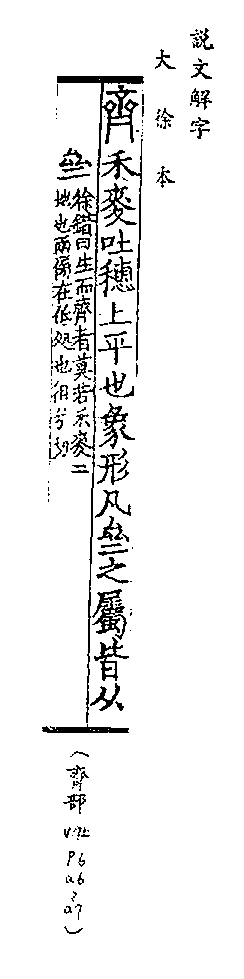 説文解字
大徐本
齊禾麥吐穗上平也象形凡亝之屬皆从
亝徐鍇曰生而齊者莫若禾麥二
地也兩傍在低処也徂兮切
(齊部
P6
a6
a7)